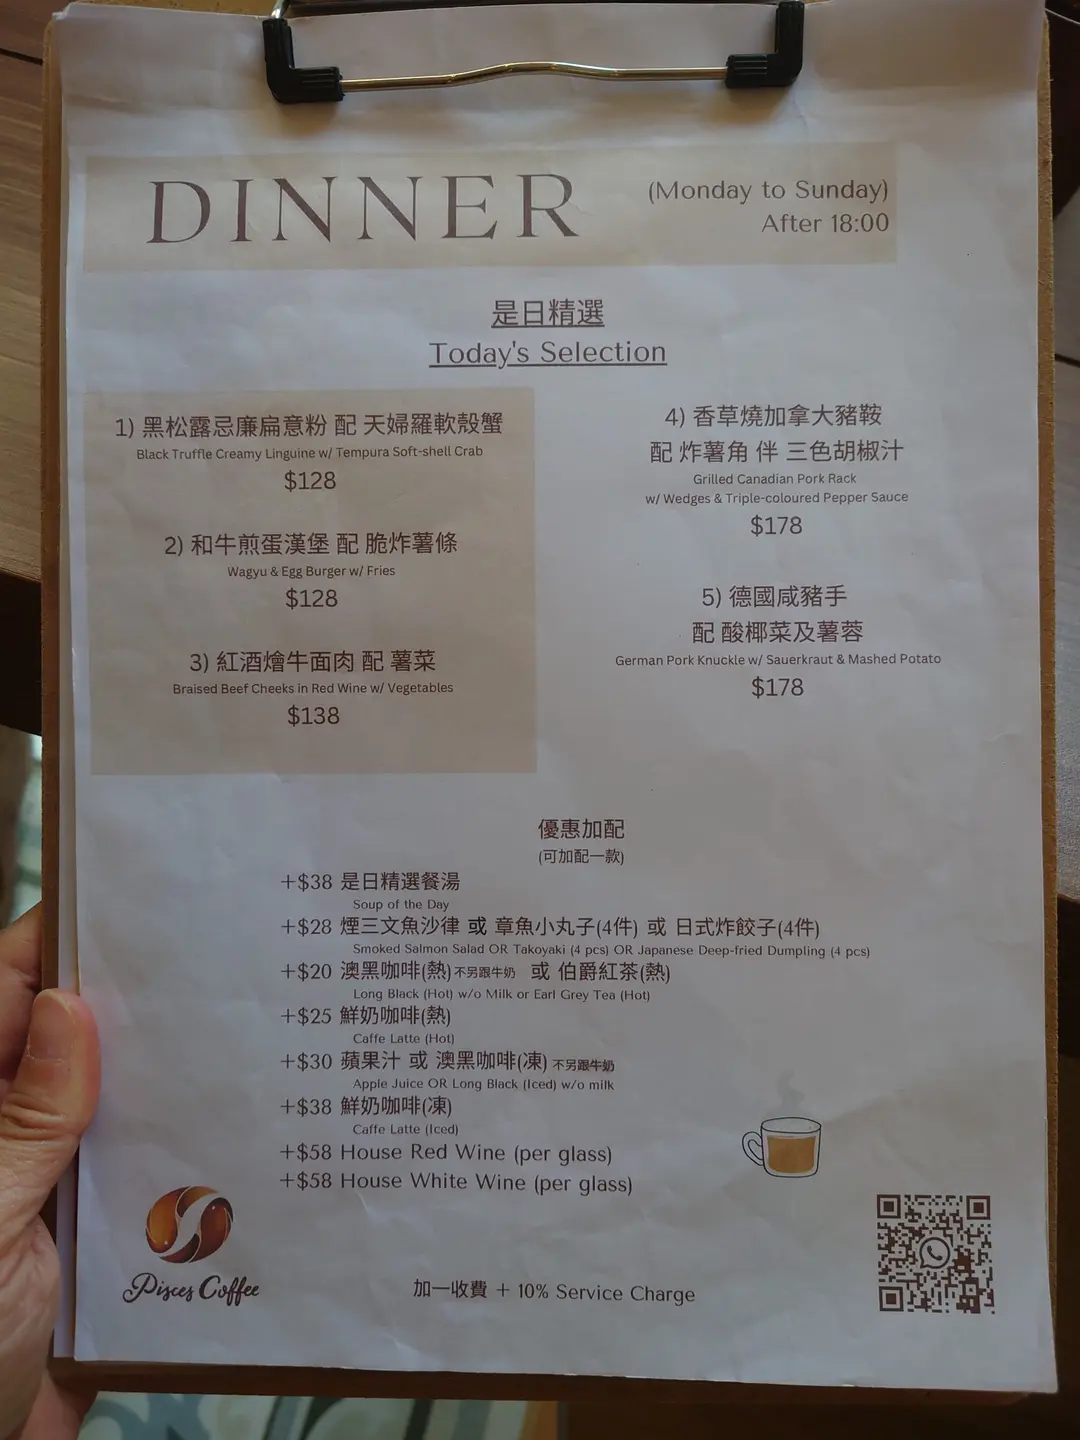 DINNER
(Monday to Sunday)
After 18:00
是日精選
Today's Selection
1) 黑松露忌廉扁意粉 配 天婦羅軟殼蟹
Black Truffle Creamy Linguine w/ Tempura Soft-shell Crab
$128
2) 和牛煎蛋漢堡 配 脆炸薯條
Wagyu & Egg Burger w/ Fries
$128
3) 紅酒燴牛面肉 配 薯菜
Braised Beef Cheeks in Red Wine w/ Vegetables
$138
4) 香草燒加拿大豬鞍
配 炸薯角 伴 三色胡椒汁
Grilled Canadian Pork Rack
w/ Wedges & Triple-coloured Pepper Sauce
$178
5) 德國咸豬手
配 酸椰菜及薯蓉
German Pork Knuckle w/ Sauerkraut & Mashed Potato
$178
優惠加配
(可加配一款)
+$38 是日精選餐湯
Soup of the Day
+$28 煙三文魚沙律 或 章魚小丸子(4件) 或 日式炸餃子(4件)
Smoked Salmon Salad OR Takoyaki (4 pcs) OR Japanese Deep-fried Dumpling (4 pcs)
+$20 澳黑咖啡(熱)不另跟牛奶 或 伯爵紅茶(熱)
Long Black (Hot) w/o Milk or Earl Grey Tea (Hot)
+$25 鮮奶咖啡(熱)
Caffe Latte (Hot)
+$30 蘋果汁 或 澳黑咖啡(凍) 不另跟牛奶
Apple Juice OR Long Black (Iced) w/o milk
+$38 鮮奶咖啡(凍)
Caffe Latte (Iced)
+$58 House Red Wine (per glass)
+$58 House White Wine (per glass)
Pisces Coffee
加一收費 + 10% Service Charge